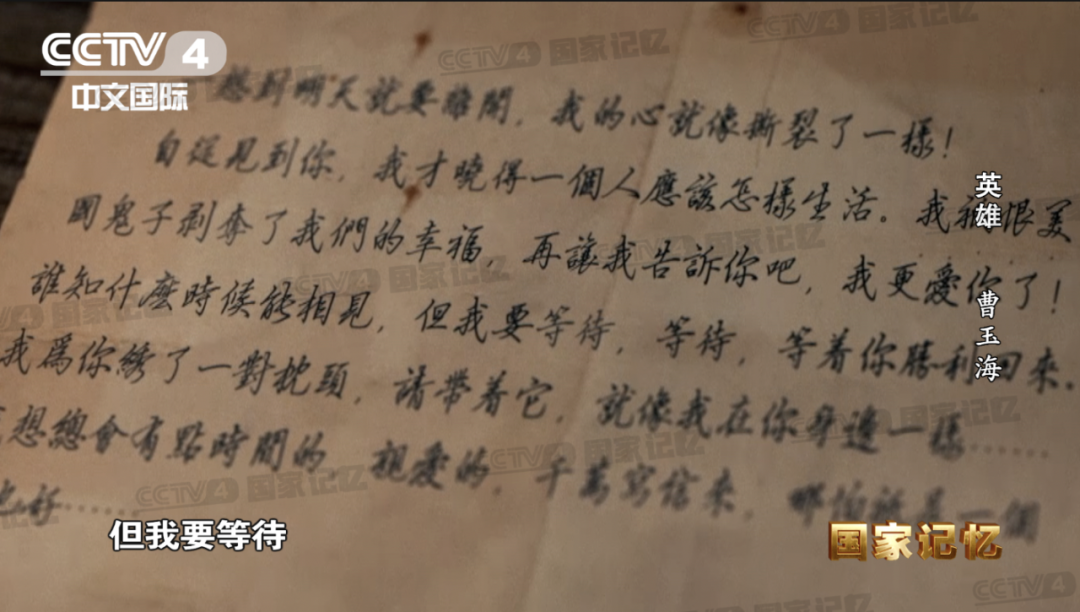 CCTV 4
中文国际
CCTV4 国家记忆
想到明天就要離開，我的心就像撕裂了一樣！
自從見到你，我才曉得一個人應該怎樣生活。我 恨美
國鬼子剥奪了我們的幸福，再讓我告訴你吧，我更愛你了！
誰知什麽時候能相見，但我要等待，等待，等着你勝利回來。
我爲你綉了一對枕頭，請帶着它，就像我在你身邊一樣……
想總會有點時間的，親愛的，千萬寫信來，哪怕 是一個
也好……
英雄 曹玉海
但我要等待
国家记忆